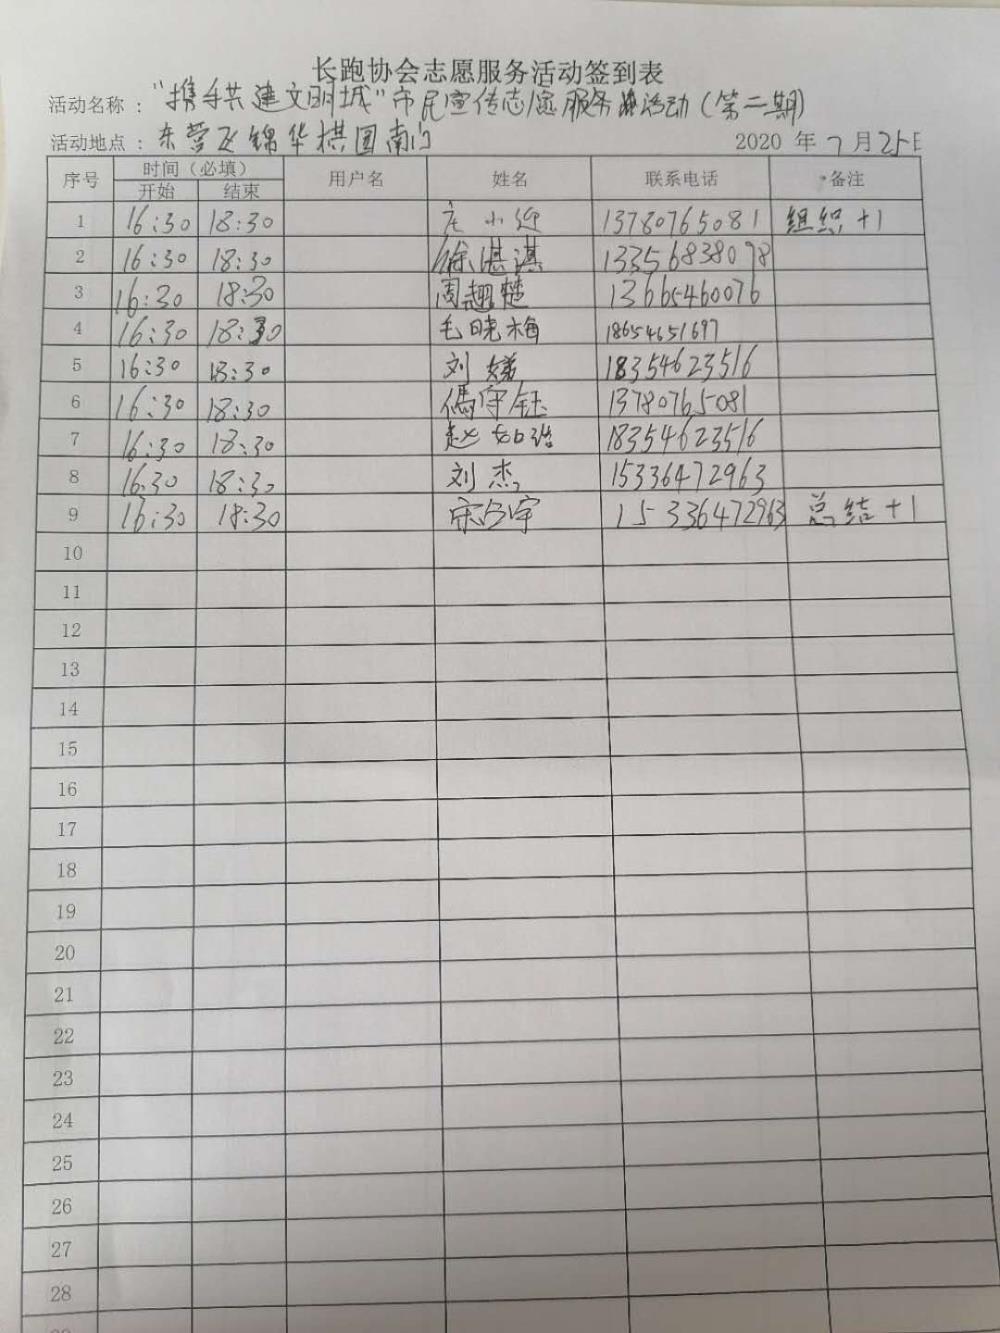 长跑协会志愿服务活动签到表
活动名称："携手共建文明城"市民宣传志愿服务活动(第二期)
活动地点：东营区锦华棋园南门 2020 年 7 月 25日
序号 时间（必填） 用户名 姓名 联系电话 备注
开始 结束
1 16:30 18:30 庄小迎 13780765081 组织+1
2 16:30 18:30 徐湛淇 13356838078
3 16:30 18:30 周趣楚 13665460076
4 16:30 18:30 毛晓梅 18654651697
5 16:30 18:30 刘 18354623516
6 16:30 18:30 冯守钰 13780765081
7 16:30 18:30 赵 18354623516
8 16:30 18:30 刘杰 15336472963
9 16:30 18:30 宋 宇 15336472963 总结+1
10
11
12
13
14
15
16
17
18
19
20
21
22
23
24
25
26
27
28